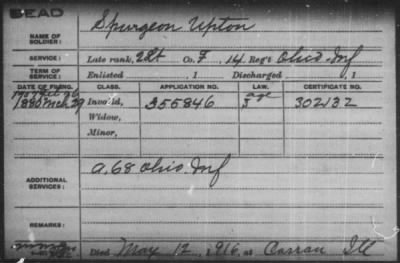 DEAD
Spurgeon Upton
NAME OF SOLDIER:
SERVICE: Late rank, 2Lt Co. F, 14 Reg't Ohio Inf
TERM OF SERVICE: Enlisted , 1 Discharged , 1
DATE OF FILING. CLASS. APPLICATION NO. LAW. CERTIFICATE NO.
1907 Feb 26 age
1880 Mch 29 Invalid, 355846 302132
Widow,
Minor,
A. 68 Ohio Inf
ADDITIONAL SERVICES:
REMARKS:
Died May 12, 1916, at Ill